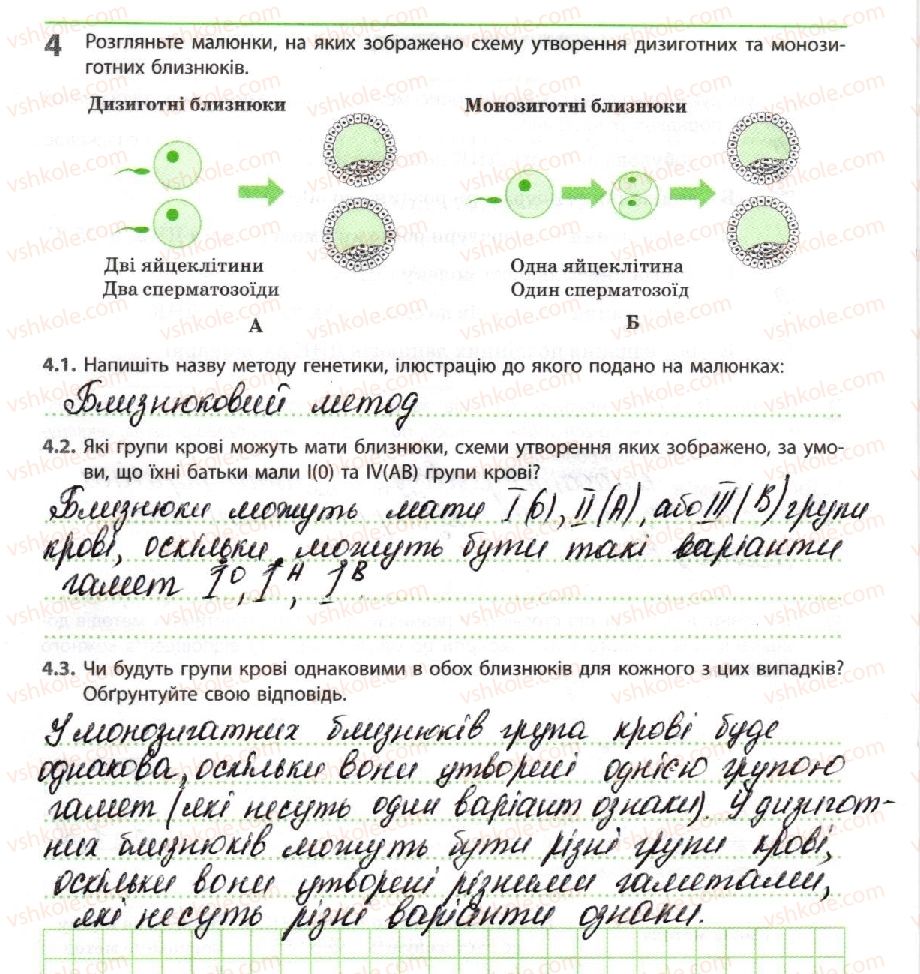 4 Розгляньте малюнки, на яких зображено схему утворення дизиготних та монози-
готних близнюків.
Дизиготні близнюки
Монозиготні близнюки
Дві яйцеклітини
Два сперматозоїди
А
Одна яйцеклітина
Один сперматозоїд
Б
4.1. Напишіть назву методу генетики, ілюстрацію до якого подано на малюнках:
Близнюковий метод
4.2. Які групи крові можуть мати близнюки, схеми утворення яких зображено, за умо-
ви, що їхні батьки мали I(0) та IV(AB) групи крові?
Близнюки можуть мати I(0), II(A), або III(B) групи
крові, оскільки можуть бути такі варіанти
гамет I⁰, Iᴬ, Iᴮ
4.3. Чи будуть групи крові однаковими в обох близнюків для кожного з цих випадків?
Обґрунтуйте свою відповідь.
У монозигатних близнюків група крові буде
однакова, оскільки вони утворені однією групою
гамет (які несуть один варіант ознаки). У дизигот-
них близнюків можуть бути різні групи крові,
оскільки вони утворені різними гаметами,
які несуть різні варіанти ознаки.
vshkole.com